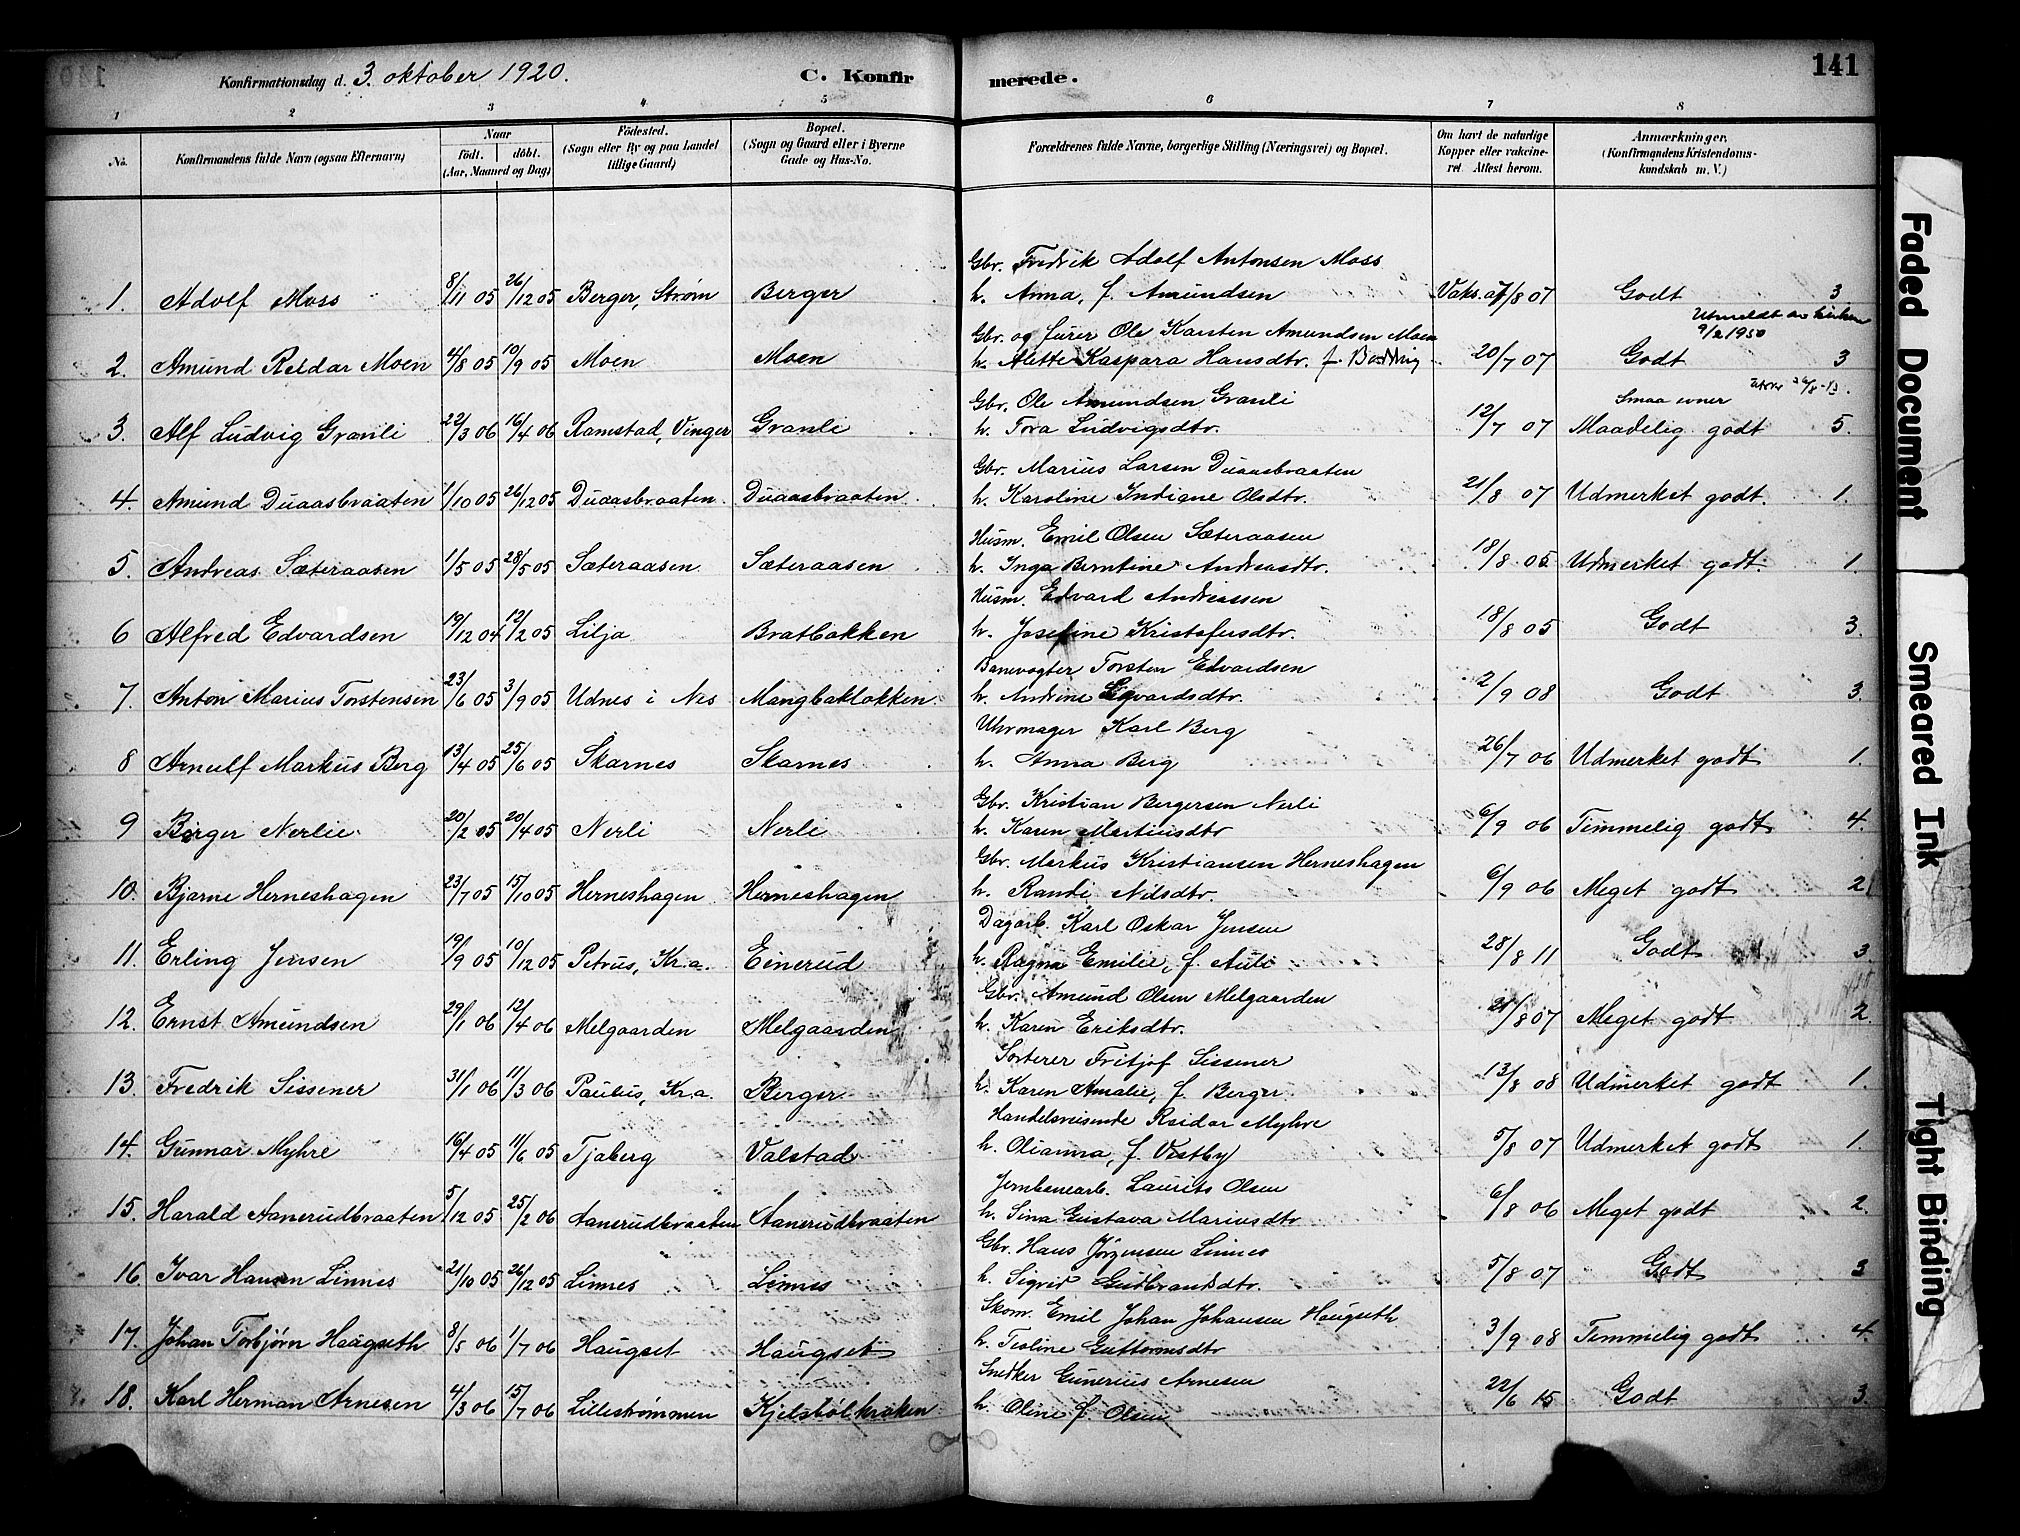 Konfirmationsdag d. 3. oktober 1920.
C. Konfirmerede.
141
1 2 3 4 5 6 7 8
No.
Konfirmandens fulde Navn (ogsaa Efternavn)
Naar
födt. döbt.
(Aar, Maaned og Dag)
Födested.
(Sogn eller By og paa Landet
tillige Gaard)
Bopæl.
(Sogn og Gaard eller i Byerne
Gade og Hus-No.
Forældrenes fulde Navne, borgerlige Stilling (Næringsvei) og Bopæl.
Om havt de naturlige
Kopper eller vakcine-
ret. Attest herom.
Anmærkninger,
(Konfirmandens Kristendoms-
kundskab m. V.)
Gbr. Fredrik Adolf Antonsen Moss
1. Adolf Moss 8/11 05 26/12 05 Berger, Strøm Berger h. Anna, f. Amundsen Vaks. /8 07 Godt 3
Utmeldt av kirken
9/2 1950
Gbr. og furer Ole Karsten Amundsen Moen
2. Amund Reidar Moen 4/8 05 10/9 05 Moen Moen h. Alette Kaspara Hansdtr. f. 20/7 07 Godt 3
Gbr. Ole Amundsen Granli Smaa evner
3. Alf Ludvig Granli 22/3 06 16/4 06 Ramstad, Vinger Granli h. Tora Ludvigsdtr. 12/7 07 Maadelig godt 5.
Gbr. Marius Larsen Duaasbraaten
4. Amund Duaasbraaten 1/10 05 26/12 05 Duaasbraaten Duaasbraaten h. Karoline Indiane Olsdtr. 21/8 07 Udmerket godt. 1.
Husm. Emil Olsen Sæteraasen
5. Andreas Sæteraasen 1/5 05 28/5 05 Sæteraasen Sæteraasen h. Inga Berntine Andreasdtr. 18/8 05 Udmerket godt. 1.
Husm. Edvard Andreassen
6 Alfred Edvardsen 19/12 04 12/2 05 Lilja Bratbakken h. Josefine Kristofersdtr. 18/8 05 Godt 3.
Banevogter Torsten Edvardsen
7. Anton Marius Torstensen 23/6 05 3/9 05 Udnes i Nes Mangbakløkken h. Andrine Edvardsdtr. 2/9 08 Godt 3.
Uhrmager Karl Berg
8 Arnulf Markus Berg 13/4 05 25/6 05 Skarnes Skarnes h. Anna Berg 26/7 06 Udmerket godt 1.
Gbr. Kristian Bergersen Nerli
9 Birger Nerlie 20/2 05 20/4 05 Nerli Nerli h. Karen Martinsdtr 6/9 06 Temmelig godt 4.
Gbr. Markus Kristiansen Herneshagen
10. Bjarne Herneshagen 23/7 05 15/10 05 Herneshagen Herneshagen h. Randi Nilsdtr. 6/9 06 Meget godt 2
Dagarb. Karl Oskar Jensen
11. Erling Jensen 19/9 05 10/12 05 Petrus, Kr.a. Einerud h. Ragna Emilie, f. Auli 28/8 11 Godt 3
Gbr. Amund Olsen Melgaarden
12. Ernst Amundsen 29/1 06 12/4 06 Melgaarden Melgaarden h. Karen Eriksdtr. 21/8 07 Meget godt 2.
Sorterer Fritjof Sissener
13. Fredrik Sissener 31/1 06 11/3 06 Paulus, Kr.a. Berger h. Karen Amalie, f. Berger 13/8 08 Udmerket godt 1.
Handelsreisende Reidar Myhre
14. Gunnar Myhre 16/4 05 11/6 05 Tjaberg Valstad h. Olianna, f. Vestby 5/8 07 Udmerket godt 1.
Jernbanearb. Laurits Olsen
15. Harald Aanerudbraaten 5/12 05 25/2 06 Aanerudbraaten Aanerudbraaten h. Sina Gustava Mariusdtr 6/8 06 Meget godt 2.
Gbr. Hans Jørgensen Linnes
16. Ivar Hansen Linnes 21/10 05 26/12 05 Linnes Linnes h. Sigrid Gudbrandsdtr. 5/8 07 Godt 3
Skom. Emil Johan Johansen Haugseth
17. Johan Torbjørn Haugseth 8/5 06 1/7 06 Haugset Haugset h. Teoline Guttormsdtr 3/9 08 Temmelig godt 4.
Snedker Gunerius Arnesen
18. Karl Herman Arnesen 4/3 06 15/7 06 Lillestrømmen Kjelsbølkroken h. Oline f. Olsen 22/6 15 Godt 3.
Faded Document
Smeared Ink
Tight Binding